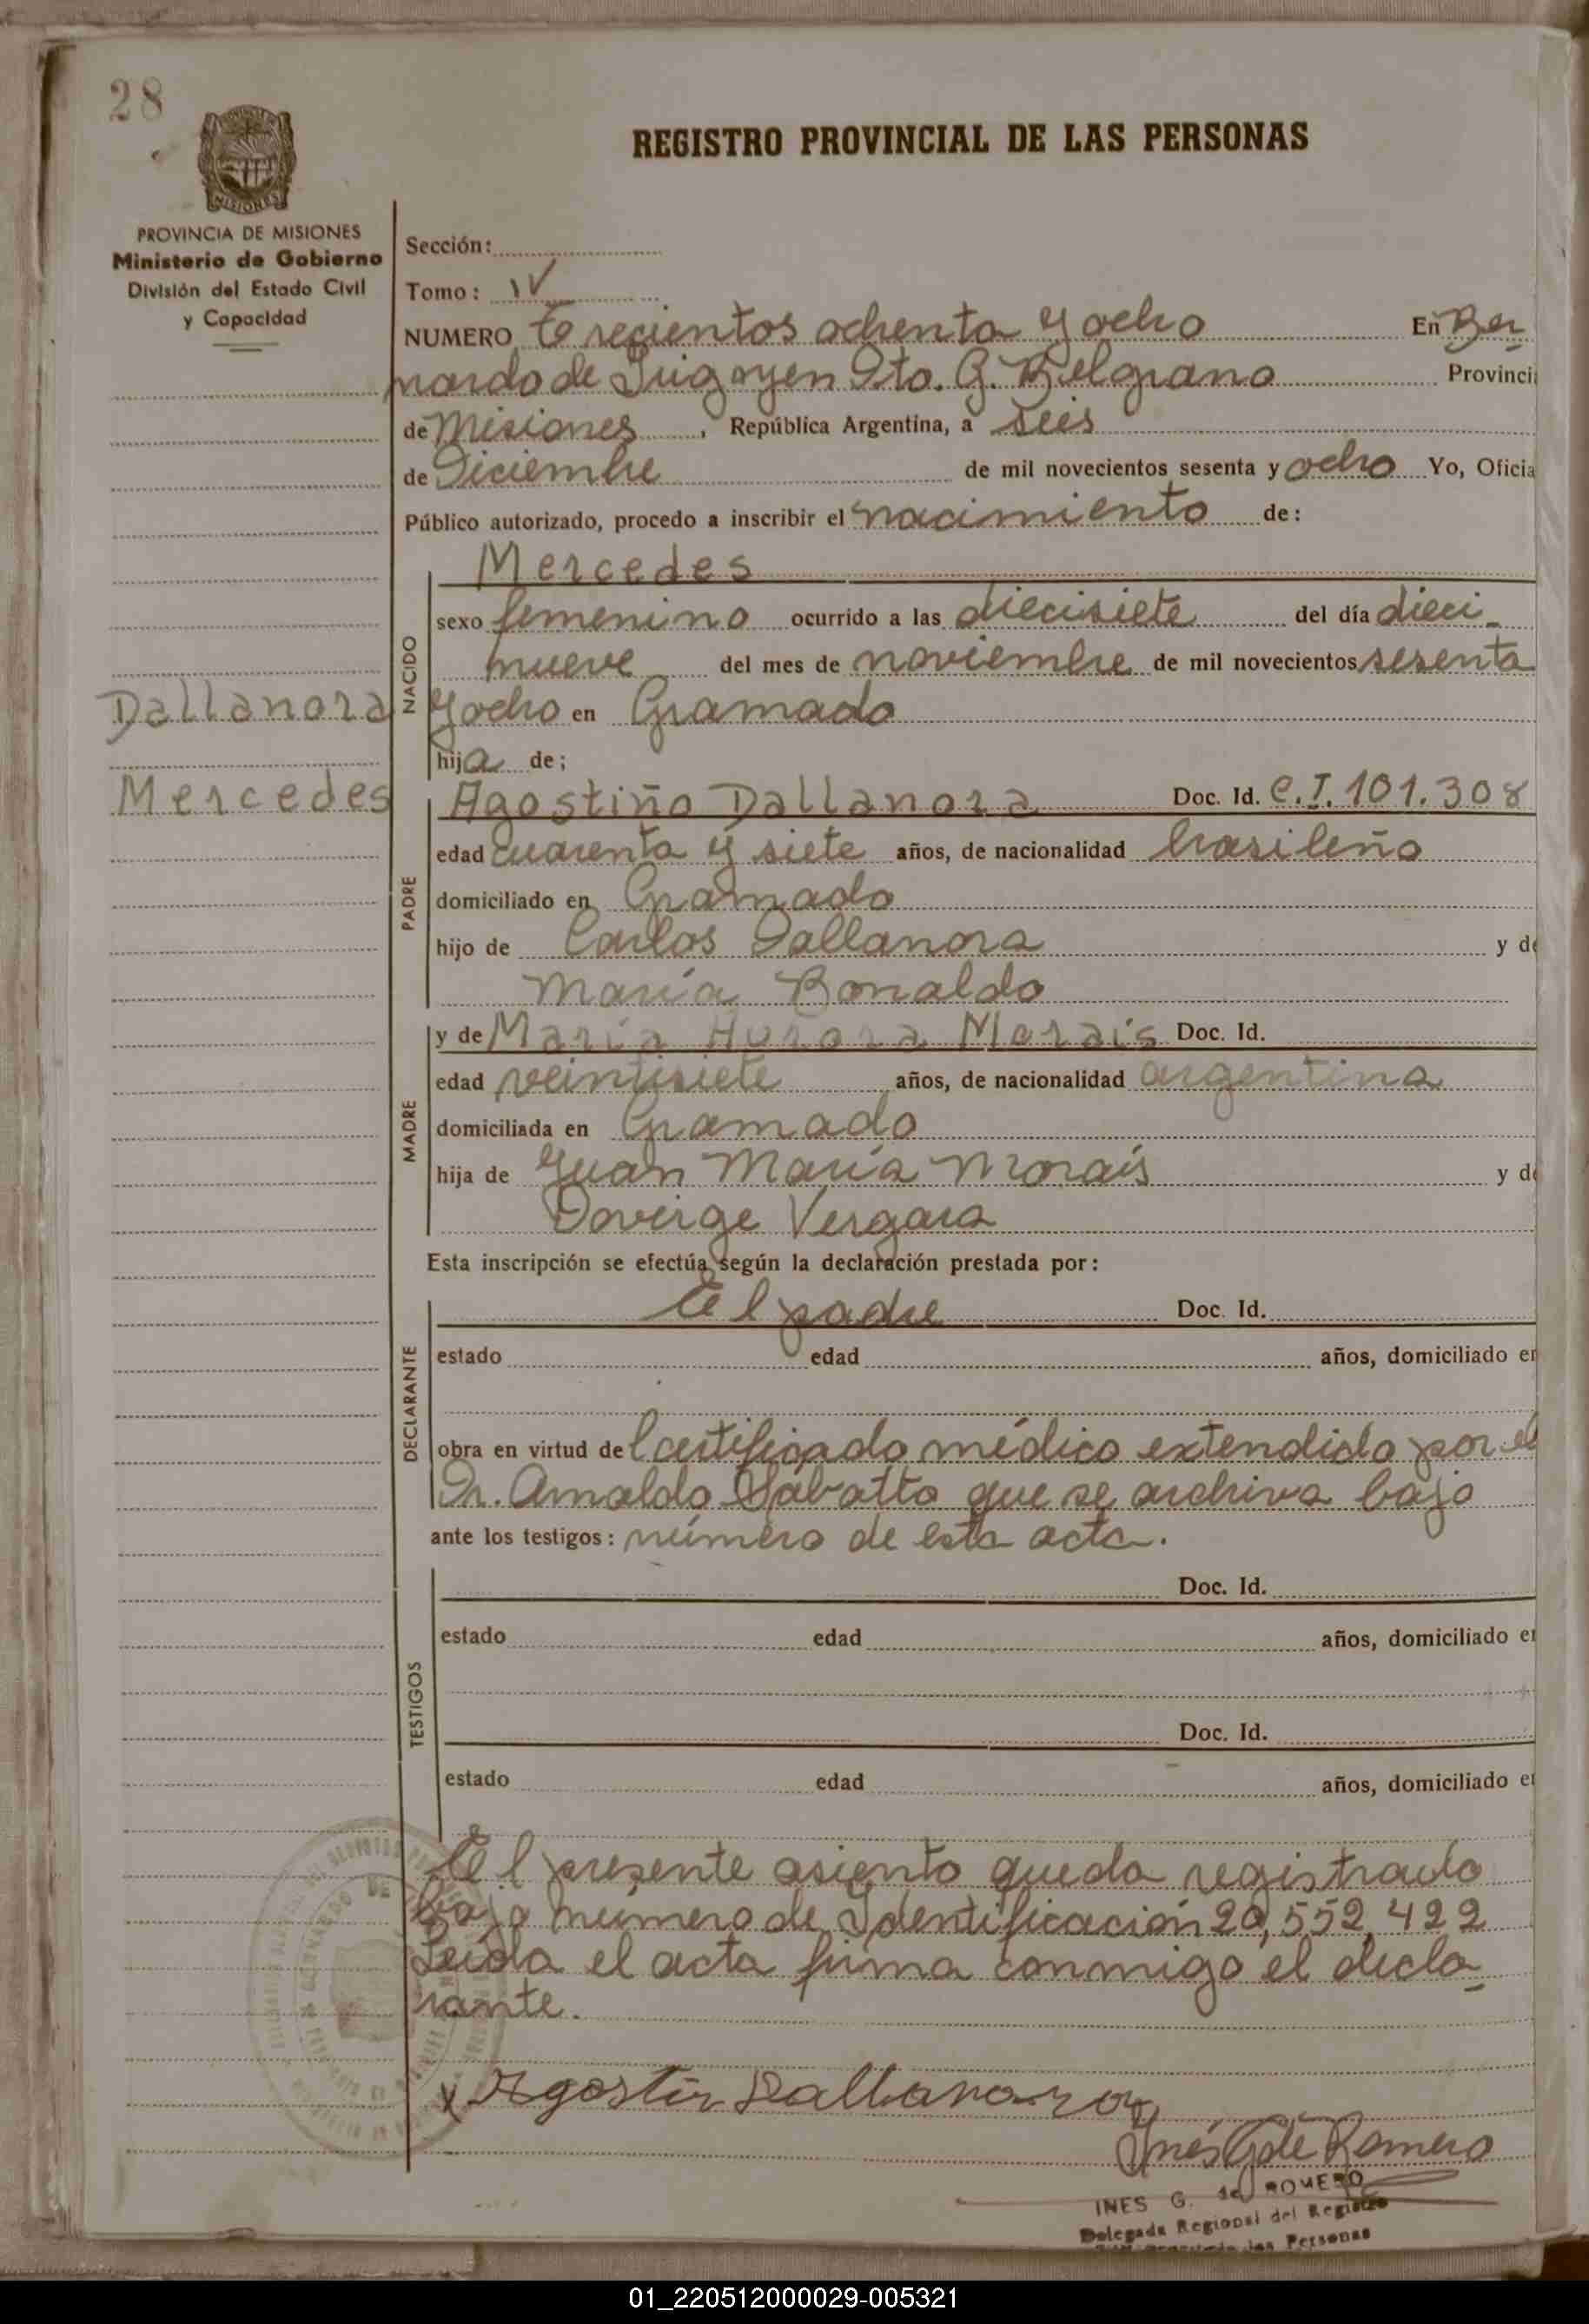 28
REGISTRO PROVINCIAL DE LAS PERSONAS
MISIONES
PROVINCIA DE MISIONES
Ministerio de Gobierno
División del Estado Civil
y Capacidad
Sección:
Tomo: IV
NUMERO Trecientos ochenta y ocho En Ber
nardo de Irigoyen Dto. G. Belgrano Provinci
de Misiones, República Argentina, a seis
de Diciembre de mil novecientos sesenta y ocho Yo, Oficia
Público autorizado, procedo a inscribir el nacimiento de:
Mercedes
NACIDO
sexo femenino ocurrido a las diecisiete del día dieci-
nueve del mes de noviembre de mil novecientos sesenta
Dallanora
y ocho en Gramado
hija de;
Mercedes
PADRE
Agostiño Dallanora Doc. Id. C.I. 101.308
edad cuarenta y siete años, de nacionalidad brasileño
domiciliado en Gramado
hijo de Carlos Dallanora y de
María Bonaldo
MADRE
y de María Aurora Morais Doc. Id.
edad veintisiete años, de nacionalidad argentina
domiciliada en Gramado
hija de Juan María Morais y de
Doverge Vergara
Esta inscripción se efectúa según la declaración prestada por:
DECLARANTE
El padre Doc. Id.
estado edad años, domiciliado en
obra en virtud de Certificado médico extendido por el
Dr. Arnaldo Sabatto que se archiva bajo
ante los testigos: número de esta acta.
TESTIGOS
Doc. Id.
estado edad años, domiciliado en
Doc. Id.
estado edad años, domiciliado en
El presente asiento queda registrado
bajo número de Identificación 20,552,422
Leída el acta firma conmigo el decla-
rante.
x Agostin Dallanora
Inés G de Romero
INES G. de ROMERO
Delegada Regional del Registro
las Personas
01_220512000029-005321